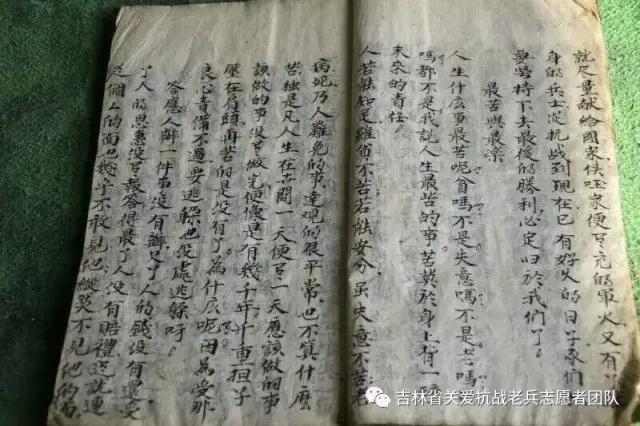 就尽量献給國家
家便有充的軍火又有
身的兵士從抗战到現在已有好久的日子
要堅持下去最後的勝利必定归於我們了。
最苦與最樂
人生什庅事最苦呢貧嗎不是失意嗎不是老嗎
嗎都不是我説人生最苦的事苦莫於身上有一
未來的責任
人若能知足雖貧不苦若能安分虽失意不苦老
病死乃人難免的事達观的很平常也不算什庅
苦独是凡人生在世間一天便有一天應該做的事
該做的事没有做完便像是有幾千年千重担子
壓在肩頭再苦的是没有了為什庅呢因為受那
良心責備不過要逃躲也没處逃躲呀
答應人辦一件事没有辦欠了人的錢没有還受
了人的恩惠没有報答得最了人没有賠禮這就連
這個人的面也幾乎不敢見他縱莫不見他的面
吉林省关爱抗战老兵志愿者团队